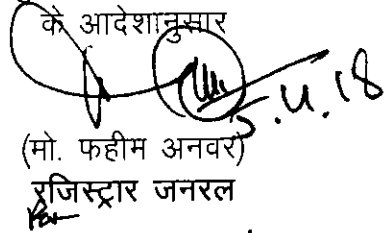 के आदेशानुसार
5.4.18
(मो. फहीम अनवर)
रजिस्ट्रार जनरल